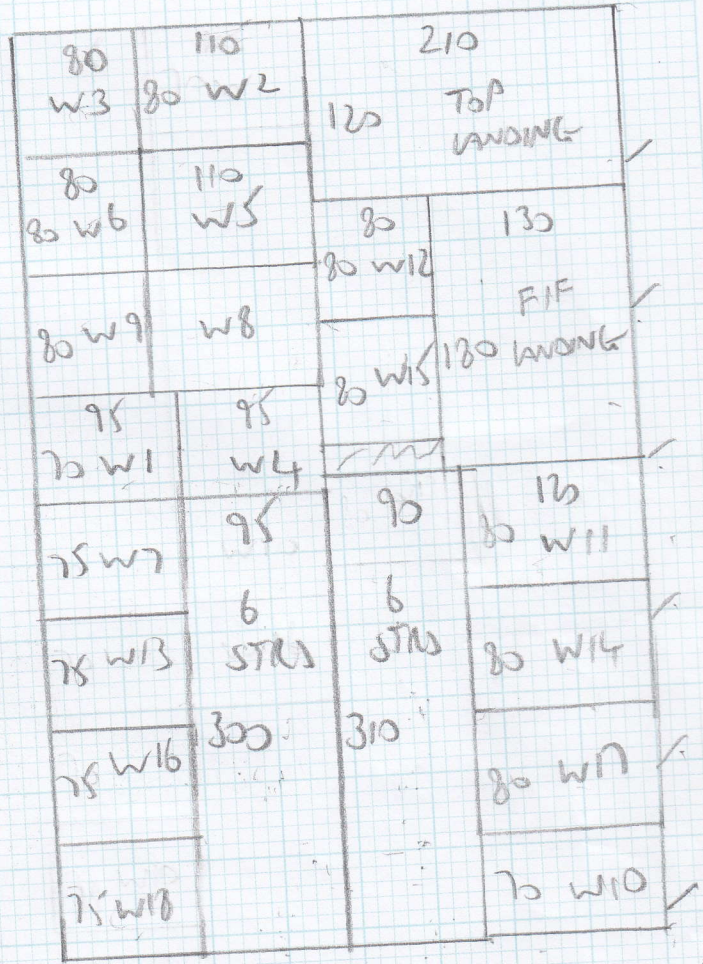 80
W3
110
80 W2
210
120 TOP
LANDING
80
80 W6
110
W5
80
80 W12
130
F/F
180 LANDING
80 W9
W8
80 W15
95
70 W1
95
W4
75 W7
95
6
STRS
300
90
6
STRS
310
120
80 W11
75 W13
80 W14
75 W16
80 W17
75 W18
70 W10